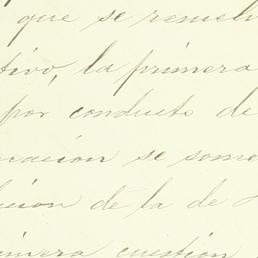 que se resuelv
tivo, la primera
por conducto de
nación se some
lución de la de
imera cuestión